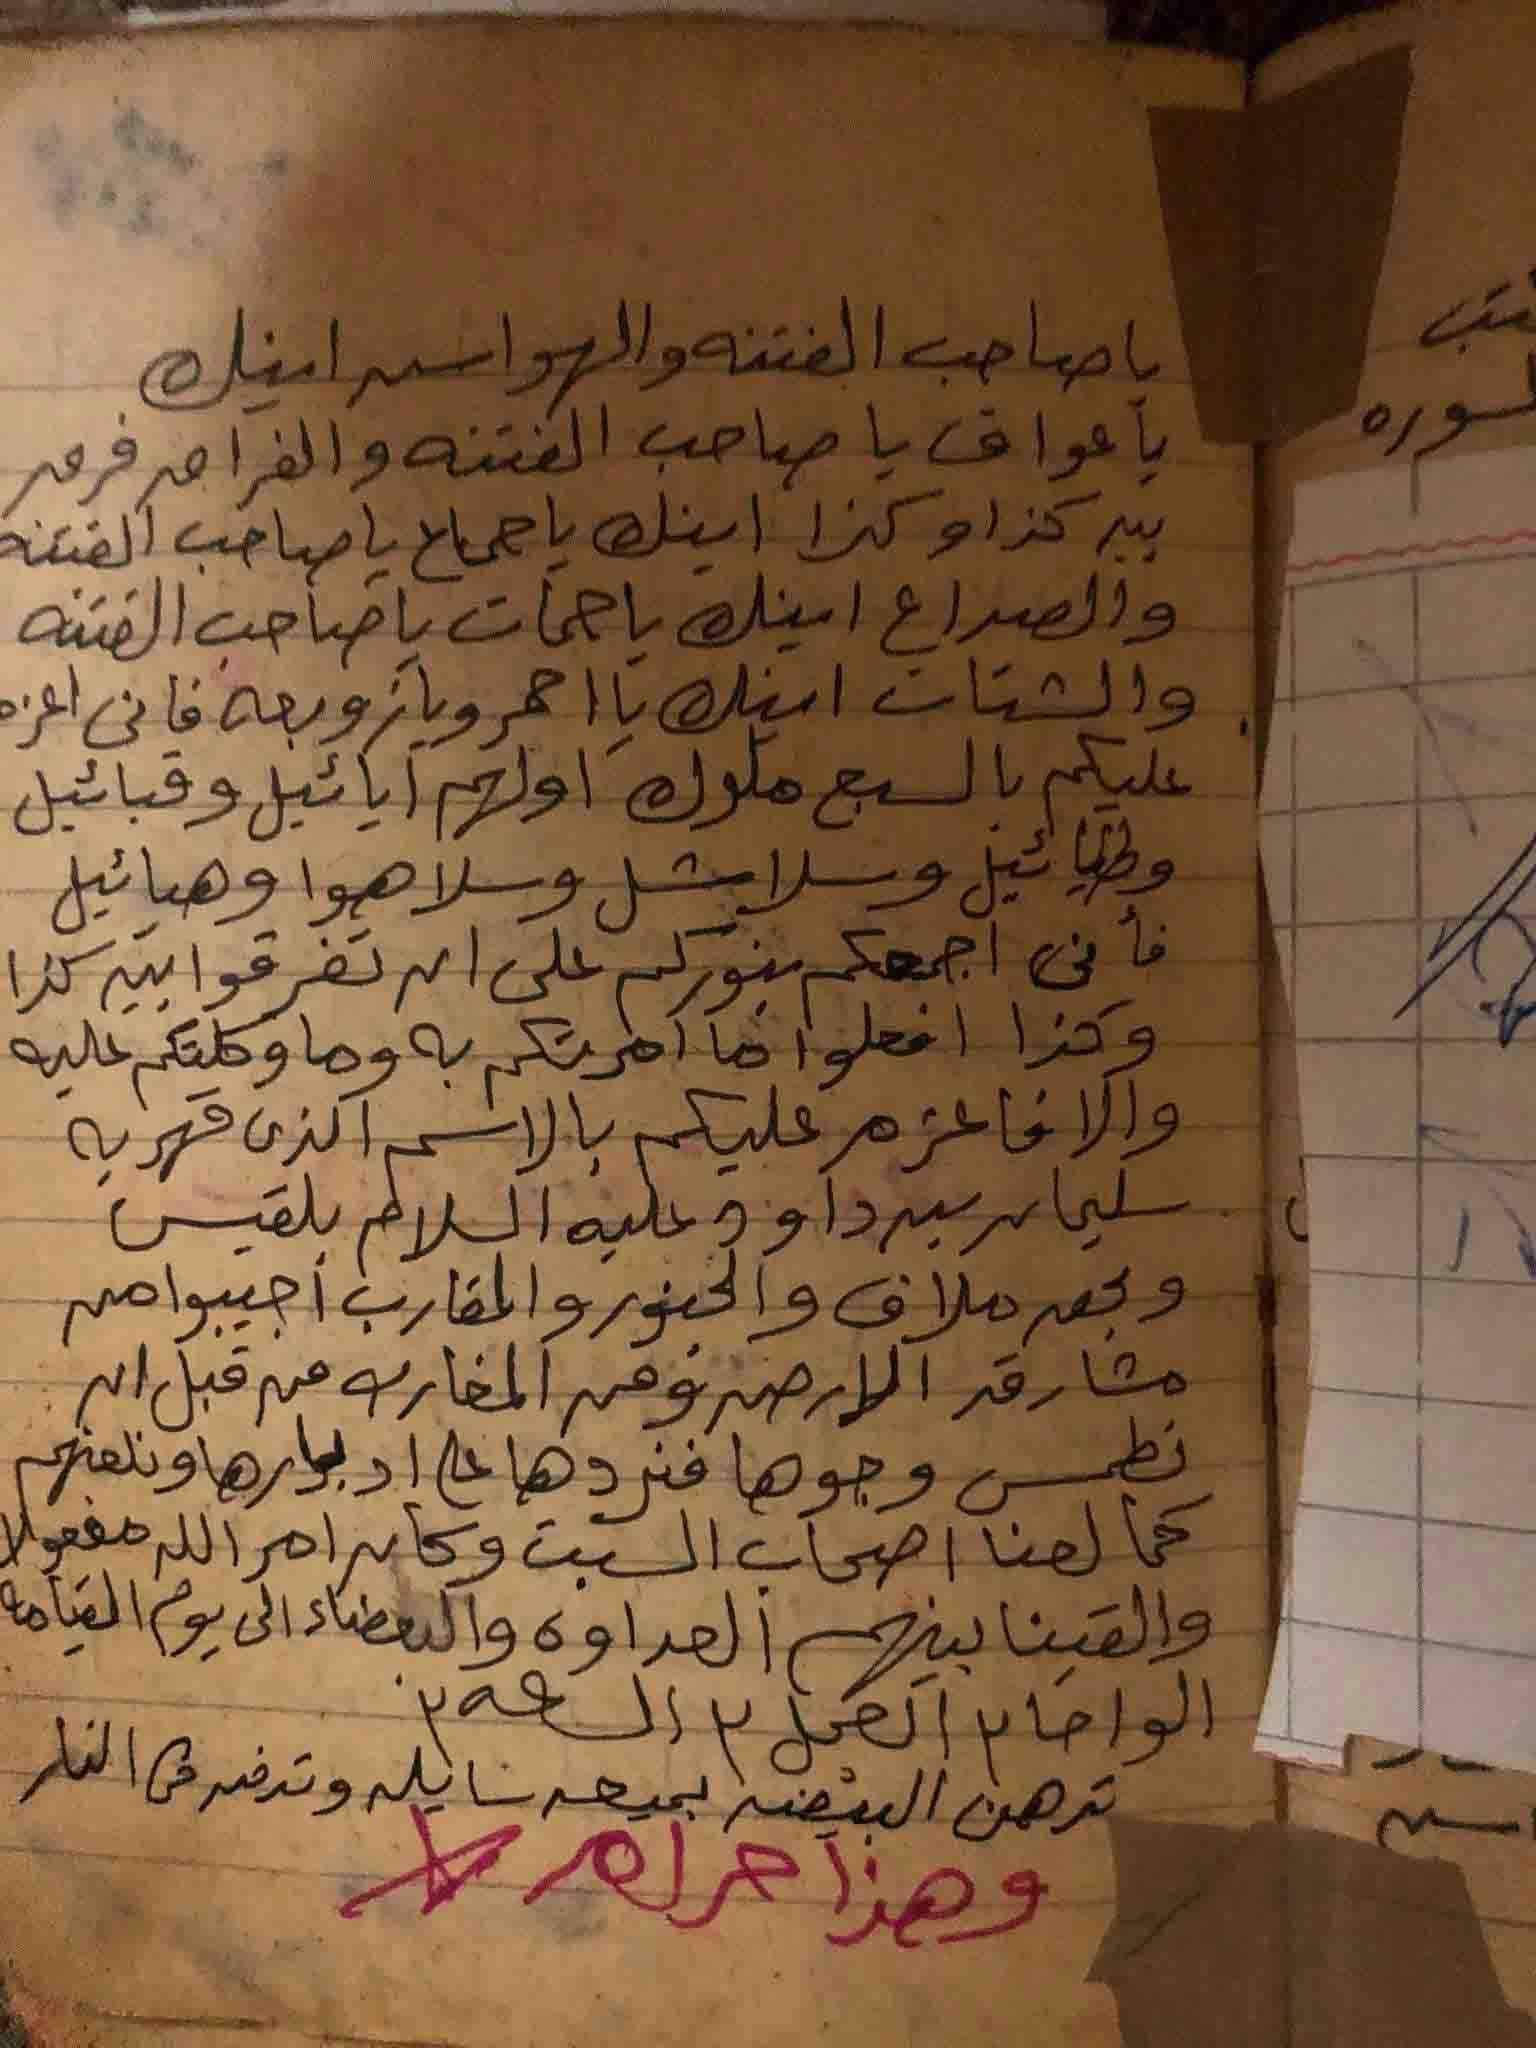 يا صاحب الفتنه والهواس اينك
يا عواق يا صاحب الفتنه والفراق فرق
بين كذا وكذا اينك يا صاحب الفتنه
والصداع اينك يا صاحب الفتنه
والشتات اينك يا احمر ويا زوبعه فانى اعزم
عليكم بالسبع ملوك اولهم ايائيل وقبائيل
وسلاهوا وهيائيل
فأنى اجمعكم بنوركم على ان تفرقوا بين كذا
وكذا افعلوا ما امرتكم به وما وكلتكم عليه
والا فاعزم عليكم بالاسم الذى قهر به
سليمان بن داود عليه السلام بلقيس
والمغارب اجيبوا من
مشارق الارض ومن المغارب من قبل ان
نطمس وجوها فنردها على ادبارها ونلعنهم
كما لعنا اصحاب السبت وكان امر الله مفعولا
والقينا بينهم العداوه والبغضاء الى يوم القيامه
الواحا ٢ العجل ٢ الساعه ٢
تدهن البيضه بميعه سايله وتدفن فى النار
وهذا حرام